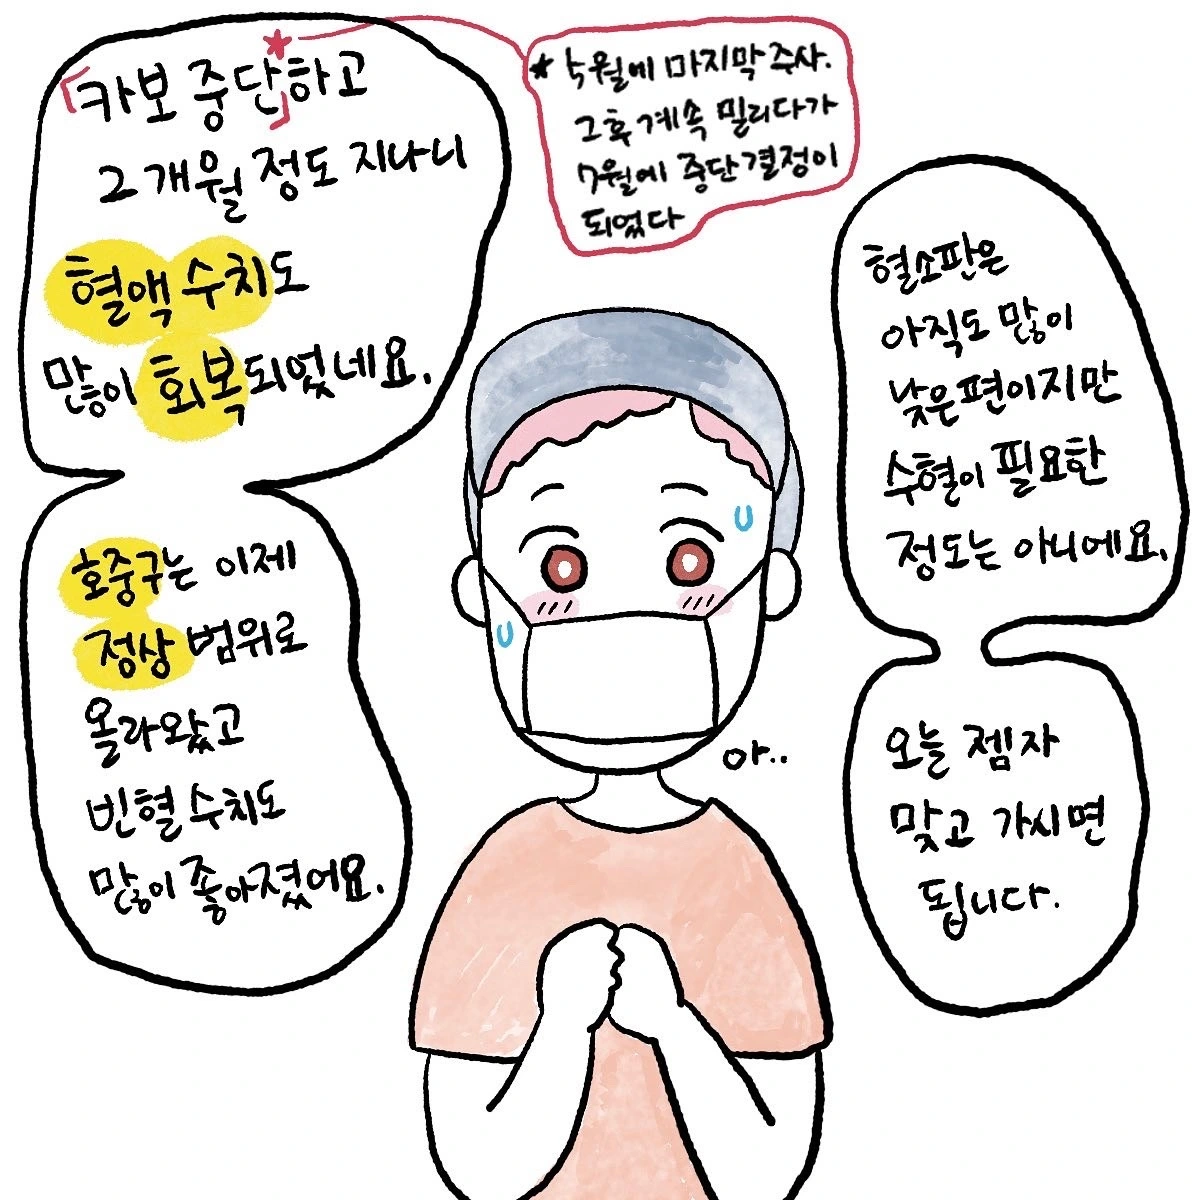 「카보 중단」하고
그 개월 정도 지나니
혈액 수치도
많이 회복되었네요.
* 5월에 마지막 주사.
그 후 계속 밀리다가
7월에 중단 결정이
되었다
호중구는 이제
정상 범위로
올라왔고
빈혈 수치도
많이 좋아졌어요.
혈소판은
아직도 많이
낮은 편이지만
수혈이 필요한
정도는 아니에요.
오늘 젬자
맞고 가시면
됩니다.
아..